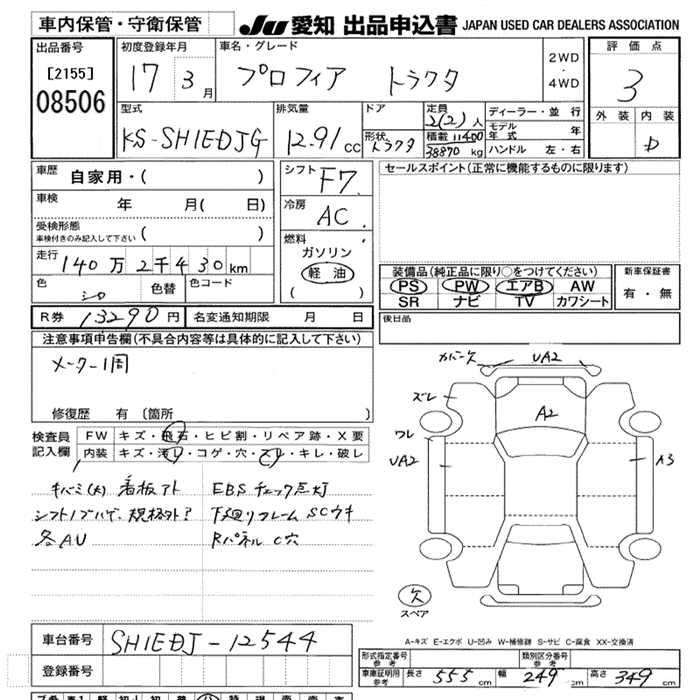 車内保管・守衛保管 JU 愛知 出品申込書 JAPAN USED CAR DEALERS ASSOCIATION
出品番号
[2155]
08506
初度登録年月
17 3月
車名・グレード
プロフィア トラクタ
2WD
・
4WD
評価点
3
外装 内装
D
型式
KS-SH1EDJG
排気量
12.91 CC
ドア
形状 トラクタ
定員 2(2)人
積載 11400
38890 kg
ディーラー・並行
モデル年式 年
ハンドル 左・右
車歴 自家用・( )
車検 年 月( 日)
受検形態
車検付きのみ記入して下さい ( )
走行 140万2千430km
色 シロ 色替 色コード
シフト F7
冷房 AC
燃料
ガソリン
軽油
( )
セールスポイント(正常に機能するものに限ります)
装備品(純正品に限り○をつけてください)
PS PW エアB AW
SR ナビ TV カワシート
新車保証書
有・無
R券 13290円 名変通知期限 月 日
後日品
注意事項申告欄(不具合内容等は具体的に記入して下さい)
メーター1周
修復歴 有 〔箇所
検査員記入欄
FW キズ・飛石・ヒビ割・リペア跡・X要
内装 キズ・汚レ・コゲ・穴・スレ・キレ・破レ
キバミ(大) 看板アト EBSチェック点灯
シフトノブハゲ、規格外? 下廻リフレームSCウキ
各AU RパネルC穴
カバーヌケ UA2
ズレ
A2
ワレ
UA2
A3
欠
スペア
A-キズ E-エクボ U-凹み W-補修跡 S-サビ C-腐食 XX-交換済
車台番号 SH1EDJ-12544
登録番号
形式指定番号
参考
類別区分番号
参考
車庫証明用
参考
長さ 555cm 幅 249cm 高さ 349cm